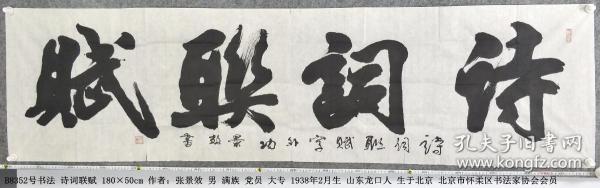 诗詞聯赋
詩詞聯赋字外功 景效書
B8352号书法 诗词联赋 180×50cm 作者：张景效 男 满族 党员 大专 1938年2月生 山东龙口人 生于北京 北京市怀柔区书法家协会会员
孔夫子旧书网